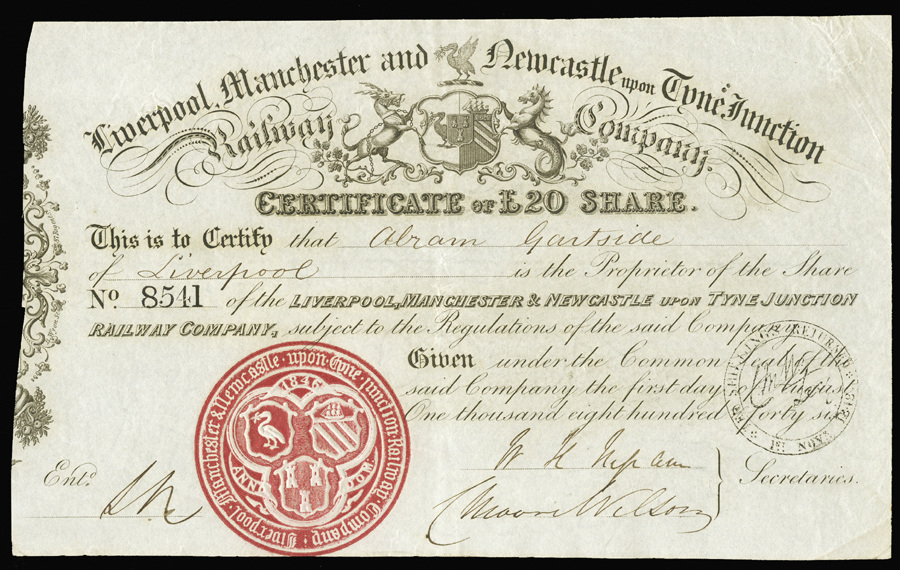 Liverpool, Manchester and Newcastle upon Tyne Junction
Railway Company.
CERTIFICATE OF £20 SHARE.
This is to Certify that Abram Gartside
of Liverpool is the Proprietor of the Share
No. 8541 of the LIVERPOOL, MANCHESTER & NEWCASTLE UPON TYNE JUNCTION
RAILWAY COMPANY, subject to the Regulations of the said Company.
Given under the Common
said Company the first day August
One thousand eight hundred forty six
Entd.
Secretaries.
Moore Wilson
Liverpool Manchester & Newcastle upon Tyne Junction Railway Company
1846
ANNO
SHILLINGS RETURNED
1ST NOVR